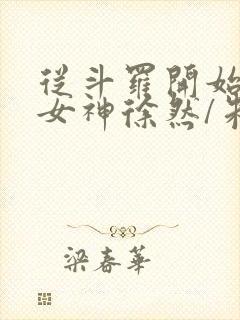 從斗羅開始
女神徐然/
梁春華